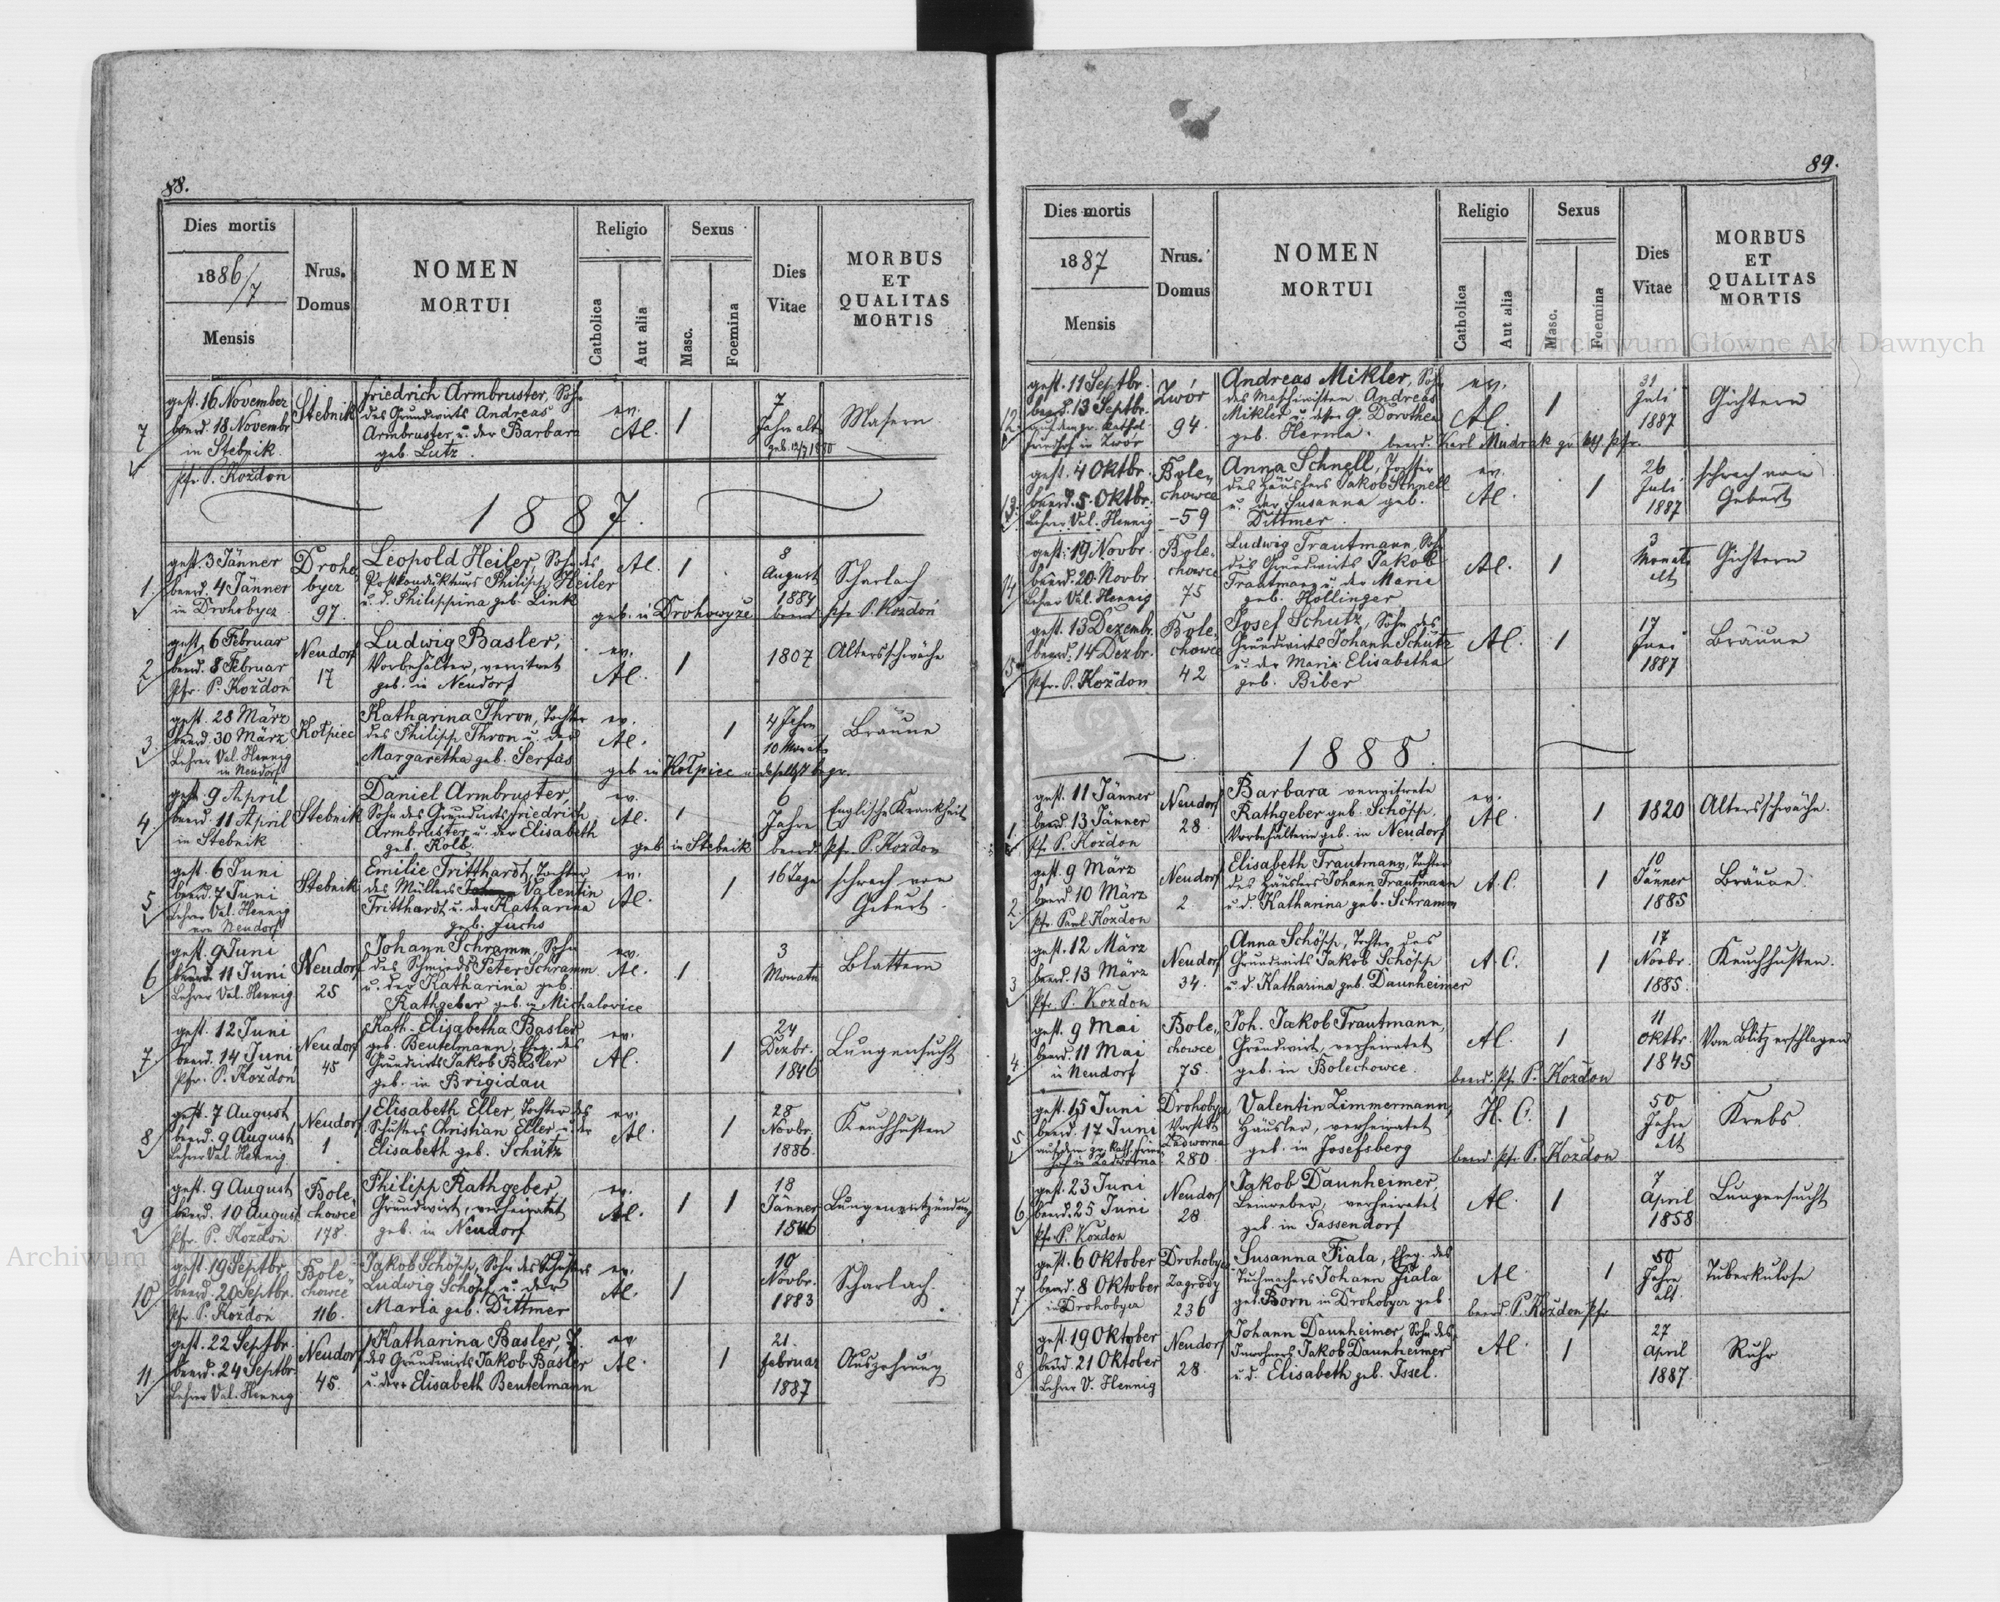 88.
Dies mortis
1886/7
Mensis
Nrus. Domus
NOMEN
MORTUI
Religio
Catholica
Aut alia
Sexus
Masc.
Foemina
Dies
Vitae
MORBUS
ET
QUALITAS
MORTIS
7
gest. 16 November
beerd. 18 Novembr
in Stebnik
Pfr. P. Kozdon
Stebnik
Friedrich Armbruster, Sohn
des Grundwirts Andreas
Armbruster u. der Barbara
geb. Lutz
ev.
Al.
1
7
Jahre alt
geb. 12/7 1880
Masern
1887.
1.
gest. 3 Jänner
beerd. 4 Jänner
in Drohobycz
Droho
bycz
97.
Leopold Heiler, Sohn des
Postkondukteurs Philipp Heiler
u. d. Philippina geb. Link
Al.
1
8
August
1884
Scharlach
geb. in Drohowyże
beerd Pfr. P. Kozdoń
2
gest. 6 Februar
beerd. 8 Februar
Pfr. P. Kozdoń
Neudorf
17
Ludwig Basler,
Vorbehälter, verwitwet
geb. in Neudorf
ev.
Al.
1
1807
Altersschwäche
3.
gest. 28 März
beerd. 30 März
Lehrer Val. Hennig
in Neudorf
Kołpiec
Katharina Thron, Tochter
des Philipp Thron u. der
Margaretha geb. Serfas
ev.
Al.
1
4 Jahre
10 Monate
Bräune
geb in Kołpiec u. daselbst begr.
4.
gest. 9 April
beerd. 11 April
in Stebnik
Stebnik
Daniel Armbruster,
Sohn des Grundwirts Friedrich
Armbruster u. der Elisabeth
geb. Kolb.
ev.
Al.
1
6
Jahre
Englische Krankheit
geb. in Stebnik
beerd. Pfr. P. Kozdon
5
gest. 6 Juni
beerd. 7 Juni
Lehrer Val. Hennig
Neudorf
Stebnik
Emilie Tritthardt, Tochter
des Müllers Valentin
Tritthardt u. der Katharina
geb. Fuchs
ev.
Al.
1
16 Tage
schwach von
Geburt.
6
gest. 9 Juni
beerd. 11 Juni
Lehrer Val. Hennig
Neudorf
25
Johann Schramm, Sohn
des Schmieds Peter Schramm
u. der Katharina geb.
Rathgeber geb. in Michalovice
ev.
Al.
1
3
Monate
Blattern
7.
gest. 12 Juni
beerd. 14 Juni
Pfr. P. Kozdoń
Neudorf
45
Kath. Elisabetha Basler
geb. Beutelmann, Eheg. des
Grundwirts Jakob Basler
geb. in Brigidau
ev.
Al.
1
24
Dezbr.
1846
Lungensucht
8
gest. 7 August
beerd. 9 August
Lehrer Val. Hennig
Neudorf
1
Elisabeth Eller, Tochter des
Schusters Christian Eller u. der
Elisabeth geb. Schütz
ev.
Al.
1
28
Novbr.
1886.
Keuchhusten
9
gest. 9 August
beerd. 10 August
Pfr. P. Kozdon
Bole,
chowce
178.
Philipp Rathgeber
Grundwirt, verheiratet
geb. in Neudorf
ev.
Al.
1 1
18
Jänner
1846
Lungenentzündung
10
gest. 19 Septbr.
beerd. 20 Septbr.
Pfr. P. Kozdon
Bole,
chowce
116.
Jakob Schöpp, Sohn des Schusters
Ludwig Schöpp u. der
Maria geb. Dittmer
ev.
Al.
1
10
Novbr.
1883
Scharlach.
11
gest. 22 Septbr.
beerd. 24 Septbr.
Lehrer Val. Hennig
Neudorf
45.
Katharina Basler, T.
des Grundwirts Jakob Basler
u. der Elisabeth Beutelmann
ev
Al.
1
21.
Februar
1887
Auszehrung
89.
Dies mortis
1887
Mensis
Nrus.
Domus
NOMEN
MORTUI
Religio
Catholica
Aut alia
Sexus
Masc.
Foemina
Dies
Vitae
MORBUS
ET
QUALITAS
MORTIS
12.
gest. 11 Septbr.
beerd. 13 Septbr.
auf dem gr. kathol.
Friedhof in Zwór
Zwór
94.
Andreas Mikler, Sohn
des Maschinisten Andreas
Mikler u. der G Dorothea
geb. Herma.
ev.
Al.
1
31
Juli
1887
Gichtern
beerd. Karl Mudrak gr. kth. Pfr.
13.
gest. 4 Oktbr.
beerd. 5. Oktbr.
Lehrer Val. Hennig
Bole,
chowce
-59
Anna Schnell, Tochter
des Häuslers Jakob Schnell
u. der Susanna geb.
Dittmer.
ev.
Al.
1
26
Juli
1887
schwach von
Geburt
14
gest. 19 Novbr.
beerd. 20 Novbr
Lehrer Val. Hennig
Bole,
chowce
75
Ludwig Trautmann, Sohn
des Grundwirts Jakob
Trautmann u. der Maria
geb. Hollinger
Al.
1
3
Monate
alt
Gichtern
15
gest. 13 Dezembr.
beerd. 14 Dezbr.
Pfr. P. Kozdon
Bole,
chowce
42
Josef Schütz, Sohn des
Grundwirts Johann Schütz
u. der Maria Elisabetha
geb. Biber
Al.
1
17
Juni
1887
Bräune
1888.
1.
gest. 11 Jänner
beerd. 13 Jänner
Pfr. P. Kozdon
Neudorf
28.
Barbara verwitwete
Rathgeber geb. Schöpp,
Vorbehälterin geb. in Neudorf
ev.
Al.
1
1820
Altersschwäche.
2
gest. 9 März
beerd. 10 März
Pfr. Paul Kozdon
Neudorf
2.
Elisabeth Trautmann, Tochter
des Häuslers Johann Trautmann
u. d. Katharina geb. Schramm
A.C.
1
10
Jänner
1885
Bräune.
3
gest. 12 März
beerd. 13 März
Pfr. P. Kozdon
Neudorf
34.
Anna Schöpp, Tochter des
Grundwirts Jakob Schöpp
u. d. Katharina geb. Daunheimer
A.C.
1
17
Novbr.
1885.
Keuchhusten.
4
gest. 9 Mai
beerd. 11 Mai
in Neudorf
Bole,
chowce
75.
Joh. Jakob Trautmann,
Grundwirt, verheiratet
geb. in Bolechowce.
Al.
1
11
Oktbr.
1845
Vom Blitz erschlagen
beerd. Pfr. P. Kozdon
5
gest. 15 Juni
beerd. 17 Juni
auf dem gr. kath. Fried
hof in Zadworna
Drohobycz
Vorstdt.
Zadworna
280.
Valentin Zimmermann,
Häusler, verheiratet
geb. in Josefsberg
H.C.
1
50
Jahre
alt
Krebs.
beerd. Pfr. P. Kozdon
6
gest. 23 Juni
beerd. 25 Juni
Pfr. P. Kozdon
Neudorf
28.
Jakob Daunheimer,
Leinweber, verheiratet
geb. in Gassendorf
Al.
1
7
April
1858
Lungensucht
7
gest. 6 Oktober
beerd. 8 Oktober
in Drohobycz
Drohobycz
Zagrody
236
Susanna Fiala, Eheg. des
Tuchmachers Johann Fiala
geb. Born in Drohobycz geb.
Al.
1
50
Jahre
alt.
Tuberkulose
beerd. P. Kozdon Pfr.
8
gest. 19 Oktober
beerd. 21 Oktober
Lehrer V. Hennig
Neudorf
28.
Johann Daunheimer, Sohn des
Inwohners Jakob Daunheimer
u. d. Elisabeth geb. Issel.
Al.
1
27
April
1887.
Ruhr
Archiwum Główne Akt Dawnych